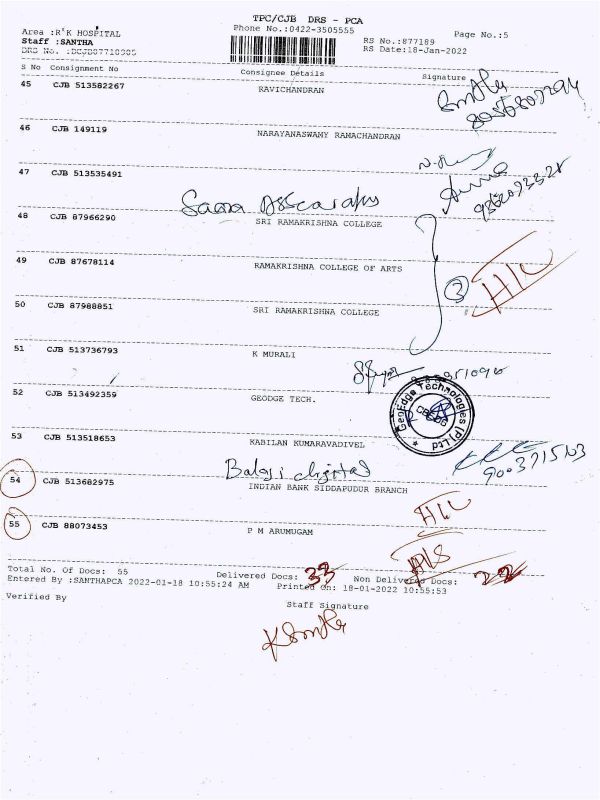 TPC/CJB DRS - PCA
Area :R'K HOSPITAL
Phone No.:0422-3505555
Page No.:5
Staff :SANTHA
RS No.:877189
RS Date:18-Jan-2022
S No Consignment No Consignee Details Signature
45 CJB 513582267 RAVICHANDRAN
46 CJB 149119 NARAYANASWAMY RAMACHANDRAN
47 CJB 513535491
48 CJB 87966290 SRI RAMAKRISHNA COLLEGE
49 CJB 87678114 RAMAKRISHNA COLLEGE OF ARTS
3
50 CJB 87988851 SRI RAMAKRISHNA COLLEGE
51 CJB 513736793 K MURALI
52 CJB 513492359 GEODGE TECH.
GeoEdge Technologies (P) Ltd
53 CJB 513518653 KABILAN KUMARAVADIVEL
Balaji digital
54 CJB 513682975 INDIAN BANK SIDDAPUDUR BRANCH
55 CJB 88073453 P M ARUMUGAM
Total No. Of Docs: 55 Delivered Docs: 33 Non Delivered Docs: 22
Entered By :SANTHAPCA 2022-01-18 10:55:24 AM Printed On: 18-01-2022 10:55:53
Verified By
Staff Signature